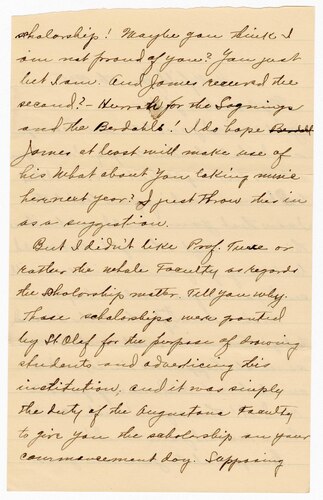 scholorship! Maybe you think I
am not proud of you? You just
bet I am. And James received the
second? - Hurrah for the Sognings
and the Berdahls! I do hope
James at least will make use of
his What about you taking music
here next year? I just throw this in
as a suggestion.
But I didn't like Prof. Tuve or
rather the whole Faculty as regards
the scholorship matter. Tell you why.
Those scholorships were granted
by St Olaf for the purpose of drawing
students and advertising this
institution, and it was simply
the duty of the Augustana Faculty
to give you the scholorship on your
commencement day. Supposing